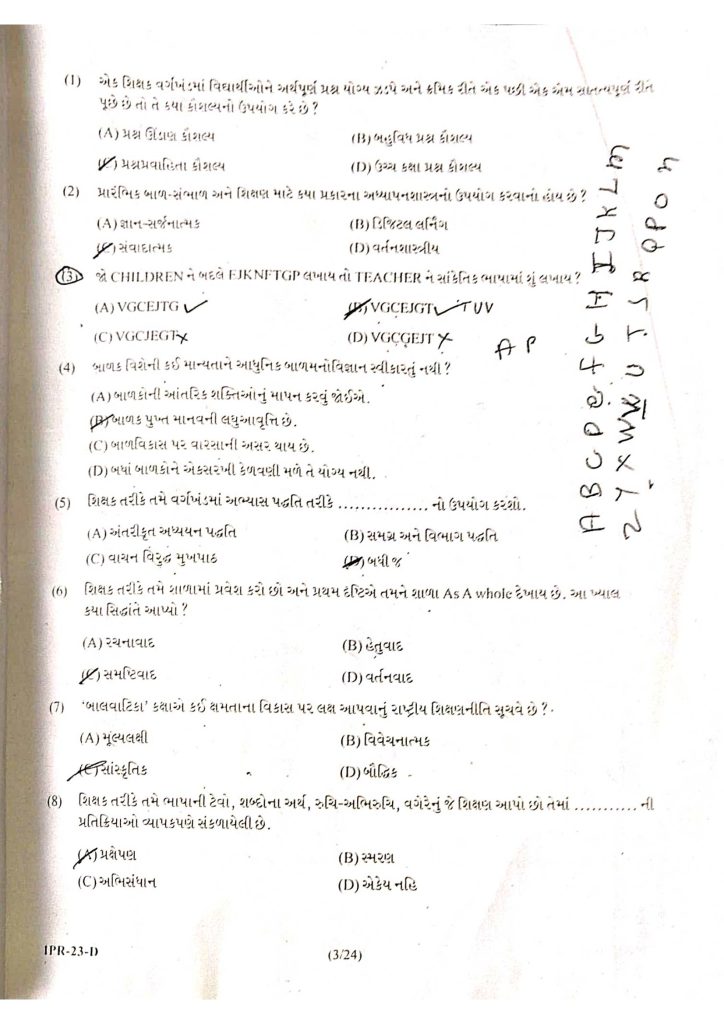 (1) એક શિક્ષક વર્ગખંડમાં વિદ્યાર્થીઓને અર્થપૂર્ણ પ્રશ્ન યોગ્ય ઝડપે અને ક્રમિક રીતે એક પછી એક એમ સાતત્યપૂર્ણ રીતે
પૂછે છે તો તે કયા કૌશલ્યનો ઉપયોગ કરે છે ?
(A) પ્રશ્ન ઊંડાણ કૌશલ્ય (B) બહુવિધ પ્રશ્ન કૌશલ્ય
(C) પ્રશ્નપ્રવાહિતા કૌશલ્ય (D) ઉચ્ચ કક્ષા પ્રશ્ન કૌશલ્ય
(2) પ્રારંભિક બાળ-સંભાળ અને શિક્ષણ માટે કયા પ્રકારના અધ્યાપનશાસ્ત્રનો ઉપયોગ કરવાનો હોય છે ?
(A) જ્ઞાન-સર્જનાત્મક (B) ડિજિટલ લર્નિંગ
(C) સંવાદાત્મક (D) વર્તનશાસ્ત્રીય
(3) જો CHILDREN ને બદલે EJKNFTGP લખાય તો TEACHER ને સાંકેતિક ભાષામાં શું લખાય ?
(A) VGCEJTG (B) VGCEJGT TUV
(C) VGCJEGT (D) VGCGEJT
A P
(4) બાળક વિશેની કઈ માન્યતાને આધુનિક બાળમનોવિજ્ઞાન સ્વીકારતું નથી ?
(A) બાળકોની આંતરિક શક્તિઓનું માપન કરવું જોઈએ.
(B) બાળક પુખ્ત માનવની લઘુઆવૃત્તિ છે.
(C) બાળવિકાસ પર વારસાની અસર થાય છે.
(D) બધાં બાળકોને એકસરખી કેળવણી મળે તે યોગ્ય નથી.
(5) શિક્ષક તરીકે તમે વર્ગખંડમાં અભ્યાસ પદ્ધતિ તરીકે ............... નો ઉપયોગ કરશો.
(A) અંતરીકૃત અધ્યયન પદ્ધતિ (B) સમગ્ર અને વિભાગ પદ્ધતિ
(C) વાચન વિરુદ્ધ મુખપાઠ (D) બધી જ
(6) શિક્ષક તરીકે તમે શાળામાં પ્રવેશ કરો છો અને પ્રથમ દૃષ્ટિએ તમને શાળા As A whole દેખાય છે. આ ખ્યાલ
કયા સિદ્ધાંતે આપ્યો ?
(A) રચનાવાદ (B) હેતુવાદ
(C) સમષ્ટિવાદ (D) વર્તનવાદ
(7) ‘બાલવાટિકા’ કક્ષાએ કઈ ક્ષમતાના વિકાસ પર લક્ષ આપવાનું રાષ્ટ્રીય શિક્ષણનીતિ સૂચવે છે ?
(A) મૂલ્યલક્ષી (B) વિવેચનાત્મક
(C) સાંસ્કૃતિક (D) બૌદ્ધિક
(8) શિક્ષક તરીકે તમે ભાષાની ટેવો, શબ્દોના અર્થ, રુચિ-અભિરુચિ, વગેરેનું જે શિક્ષણ આપો છો તેમાં ........... ની
પ્રતિક્રિયાઓ વ્યાપકપણે સંકળાયેલી છે.
(A) પ્રક્ષેપણ (B) સ્મરણ
(C) અભિસંધાન (D) એકેય નહિ
IPR-23-D (3/24)
A B C D e f G H I J K L M
Z Y X W U T S R Q P O